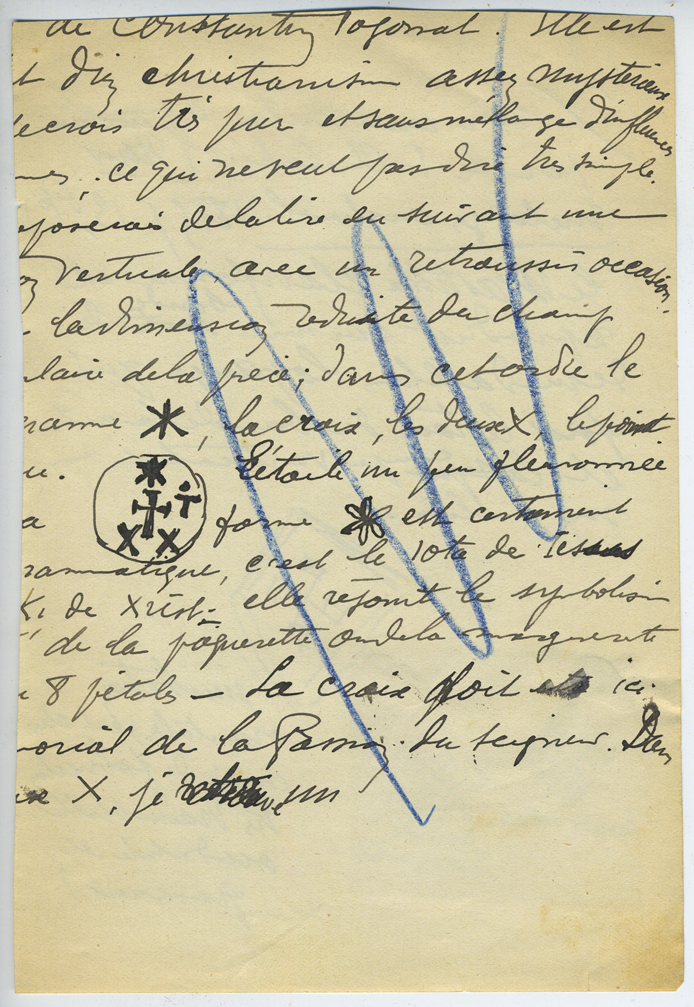 de Constantin Pogonat. Elle est
t du christianisme assez mystérieux
e crois très pur et sans mélange d'influences
nes, ce qui ne veut pas dire très simple.
poserais de la lire en suivant une
verticale, avec un retroussis occasion.
la dimension réduite du champ
ulaire de la pièce; dans cet ordre le
ramme *, la croix, les deux X, le point
u. L'étoile un peu fleuronnée
a forme est certainement
rammatique, c'est le iota de Iesus
Ki de Xrist. elle rejoint le symbolism
de la pâquerette ou de la marguerite
8 pétales — La croix doit ici
orial de la Passion du Seigneur. Dans
ux X, je retrouve un